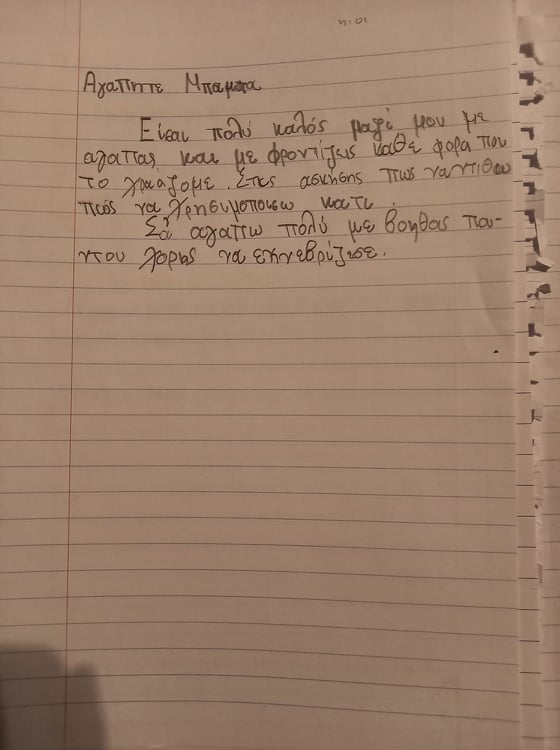 Αγαπητε Μπαμπα
Είσαι πολύ καλός μαζί μου με
αγαπας και με φροντίζεις κάθε φορα που
το χριάζομε. Στις ασκήσης πως να ντιθω
πώς να χρησυμοποιισω κατι.
Σά αγαπω πολύ με βοηθας πα-
ντου χορης να εκνεβρίζεσε.